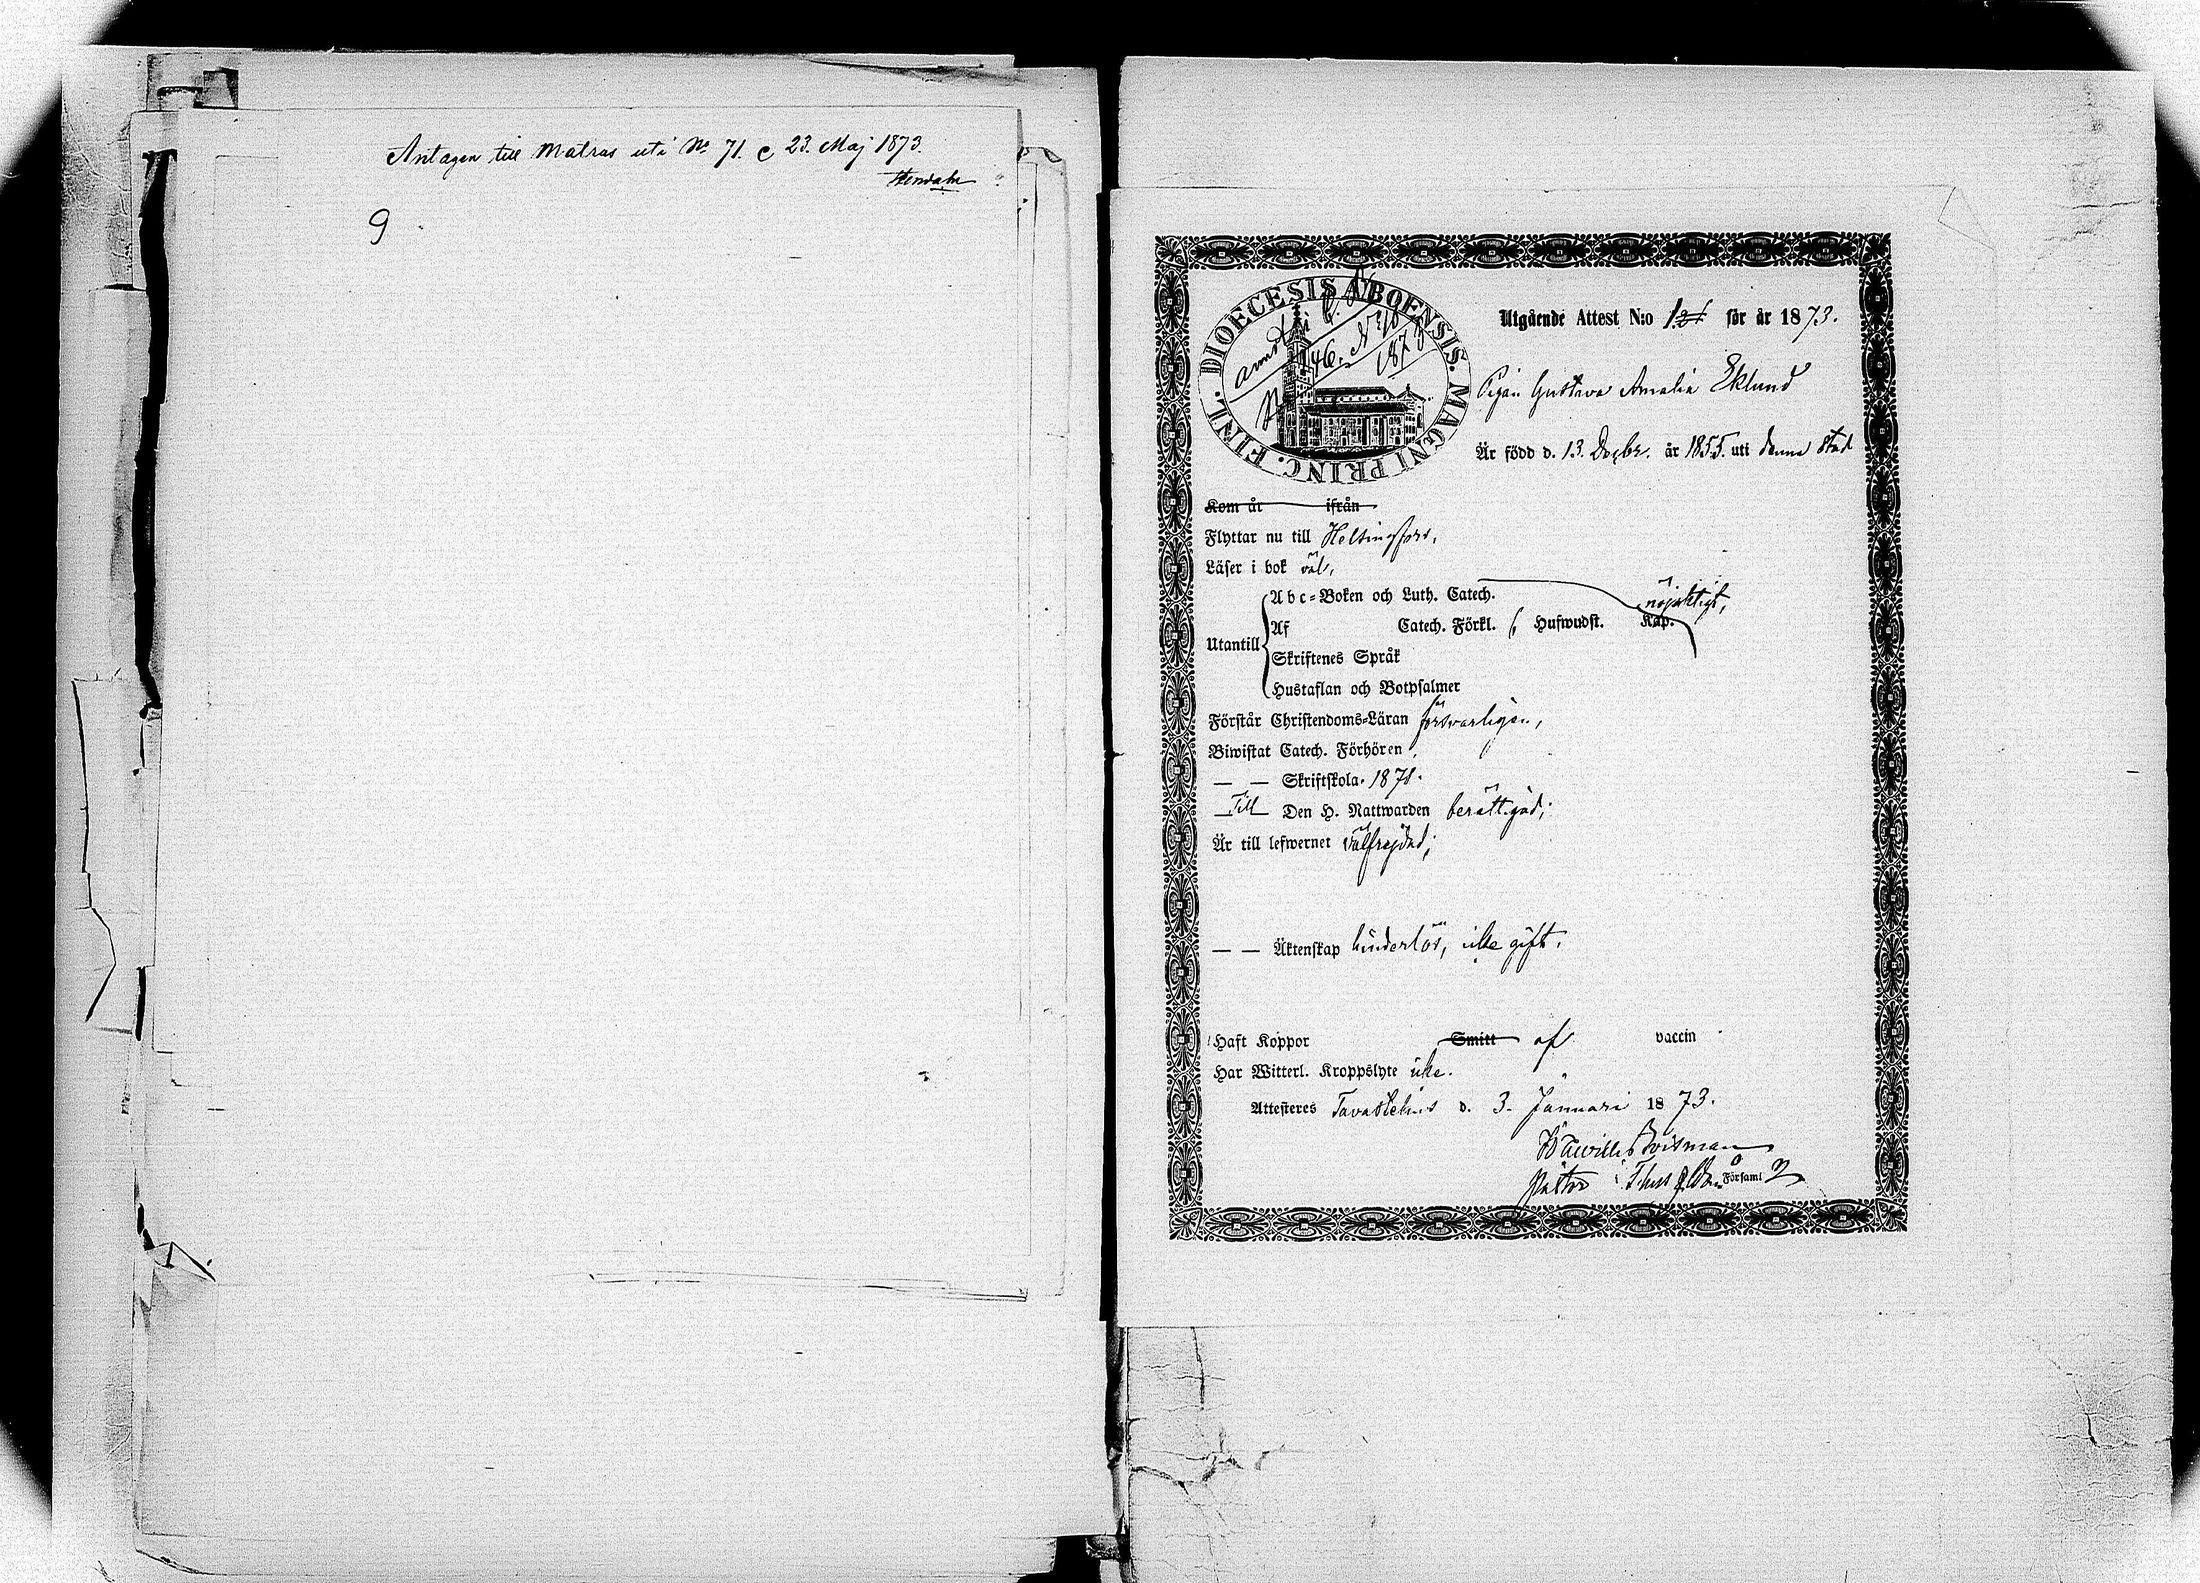 Antagen till Matros uti No 71. C 23. Maj 1873.
9
DIOECESIS ABOENSIS. MAGNI PRINC. FINL.
Utgående Attest N:o för år 1873.
Pigan Gustava Amalia Eklund
Är född d. 13. Decbr. år 1855. uti denna Stad
Kom år ifrån
Flyttar nu till Helsingfors,
Läser i bok väl,
Utantill
Abc-Boken och Luth. Catech. nöjaktigt,
Af Catech. Förkl. Hufwudst. Kap.
Skriftenes Språk
Hustaflan och Botpsalmer
Förstår Christendoms-Läran försvarligen,
Biwistat Catech. Förhören
— — Skriftskola. 1871.
Till Den H. Nattwarden berättigad;
Är till lefwernet välfrejdad;
— — Äktenskap hinderlös, icke gift.
Haft Koppor Smitt af vaccin
Har Witterl. Kroppslyte icke.
Attesteres Tavastehus d. 3. Januari 1873.
Pastor i Församl